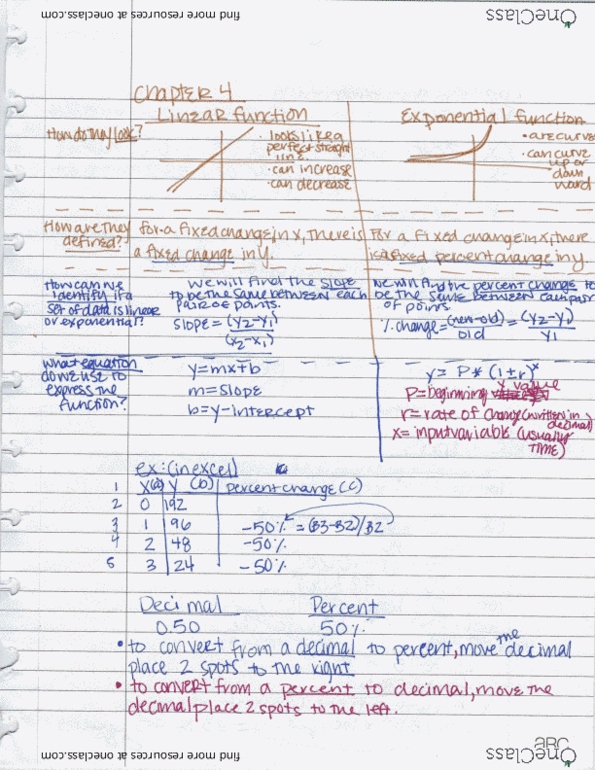 find more resources at oneclass.com
OneClass
Chapter 4
Linear function
Exponential function
How do they look?
• looks like a perfect straight line.
• can increase
• can decrease
• are curved
• can curve up or down ward
How are they defined?
for a fixed change in x, there is a fixed change in y.
For a fixed change in x, there is a fixed percent change in y.
How can we identify if a set of data is linear or exponential?
we will find the slope to be the same between each pair of points.
slope = (y2-y1)
(x2-x1)
we will find the percent change to be the same between each pair of points.
% change = (new-old) = (y2-y1)
old y1
what equation do we use to express the function?
y=mx+b
m=slope
b=y-intercept
y = P * (1+r)^x
P=beginning y value
r=rate of change (written in decimal)
x=input variable (usually TIME)
ex: (in excel)
1 x(a) y (b) percent change (c)
2 0 192
3 1 96 -50% = (B3-B2)/B2
4 2 48 -50%
5 3 24 -50%
Decimal Percent
0.50 50%
• to convert from a decimal to percent, move the decimal
place 2 spots to the right
• to convert from a percent to decimal, move the
decimal place 2 spots to the left.
find more resources at oneclass.com
OneClass